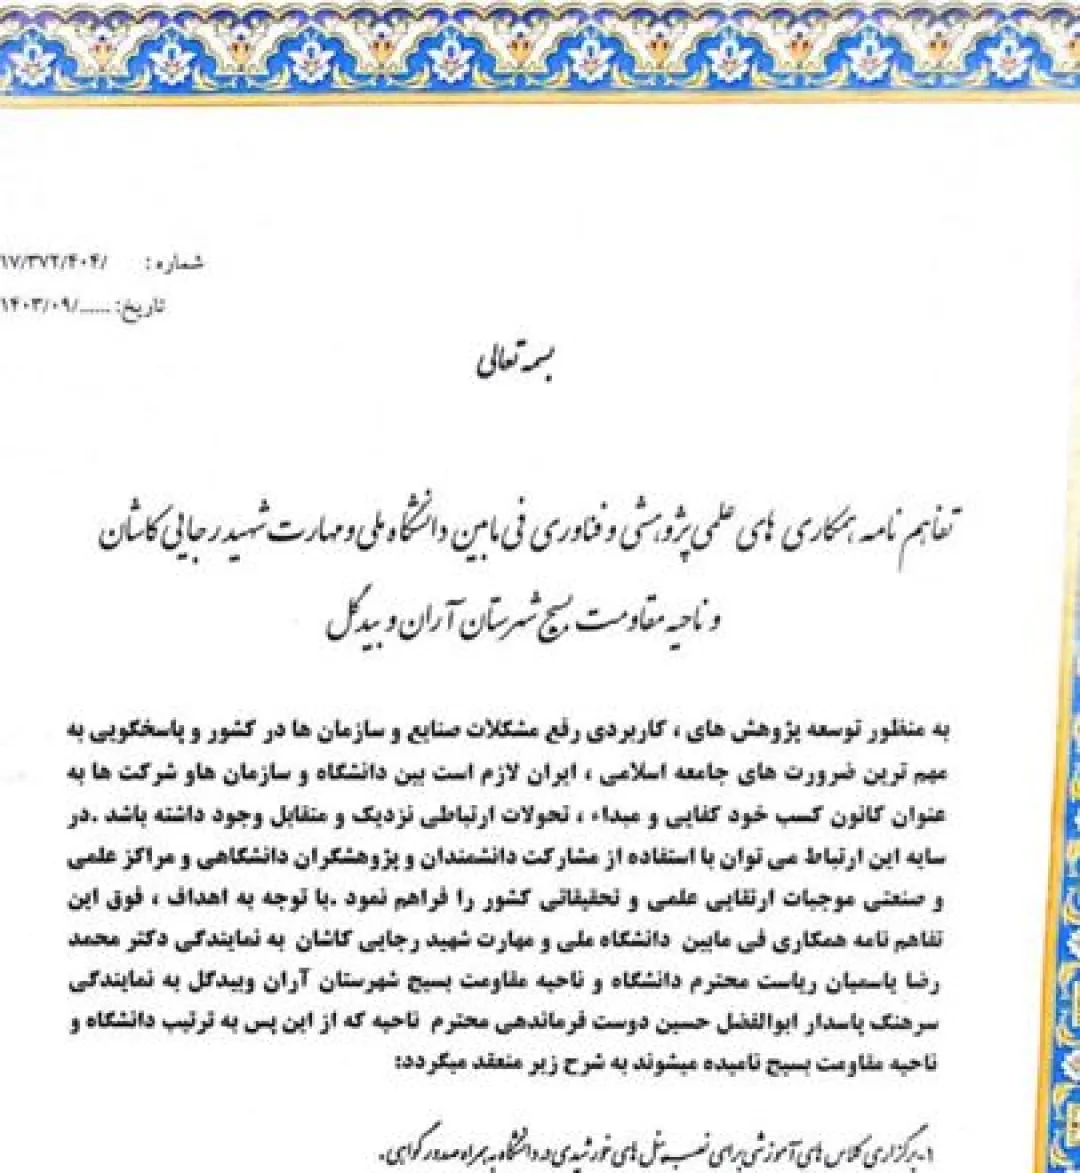 شماره: /۱۷/۳۷۲/۴۰۴
تاریخ: ...../۱۴۰۳/۰۹
بسمه تعالی
تفاهم نامه همکاری های علمی پژوهشی و فناوری فی مابین دانشگاه ملی و مهارت شهید رجایی کاشان
و ناحیه مقاومت بسیج شهرستان آران و بیدگل
به منظور توسعه پژوهش های ، کاربردی رفع مشکلات صنایع و سازمان ها در کشور و پاسخگویی به
مهم ترین ضرورت های جامعه اسلامی ، ایران لازم است بین دانشگاه و سازمان هاو شرکت ها به
عنوان کانون کسب خود کفایی و مبداء ، تحولات ارتباطی نزدیک و متقابل وجود داشته باشد .در
سایه این ارتباط می توان با استفاده از مشارکت دانشمندان و پژوهشگران دانشگاهی و مراکز علمی
و صنعتی موجبات ارتقایی علمی و تحقیقاتی کشور را فراهم نمود .با توجه به اهداف ، فوق این
تفاهم نامه همکاری فی مابین دانشگاه ملی و مهارت شهید رجایی کاشان به نمایندگی دکتر محمد
رضا یاسمیان ریاست محترم دانشگاه و ناحیه مقاومت بسیج شهرستان آران وبیدگل به نمایندگی
سرهنگ پاسدار ابوالفضل حسین دوست فرماندهی محترم ناحیه که از این پس به ترتیب دانشگاه و
ناحیه مقاومت بسیج نامیده میشوند به شرح زیر منعقد میگردد:
۱- برگزاری کلاس های آموزشی برای نصب پنل های خورشیدی در دانشگاه به همراه صدور گواهی.